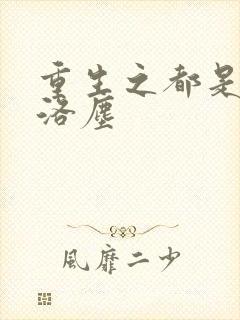 重生之都是
洛塵
風靡二少